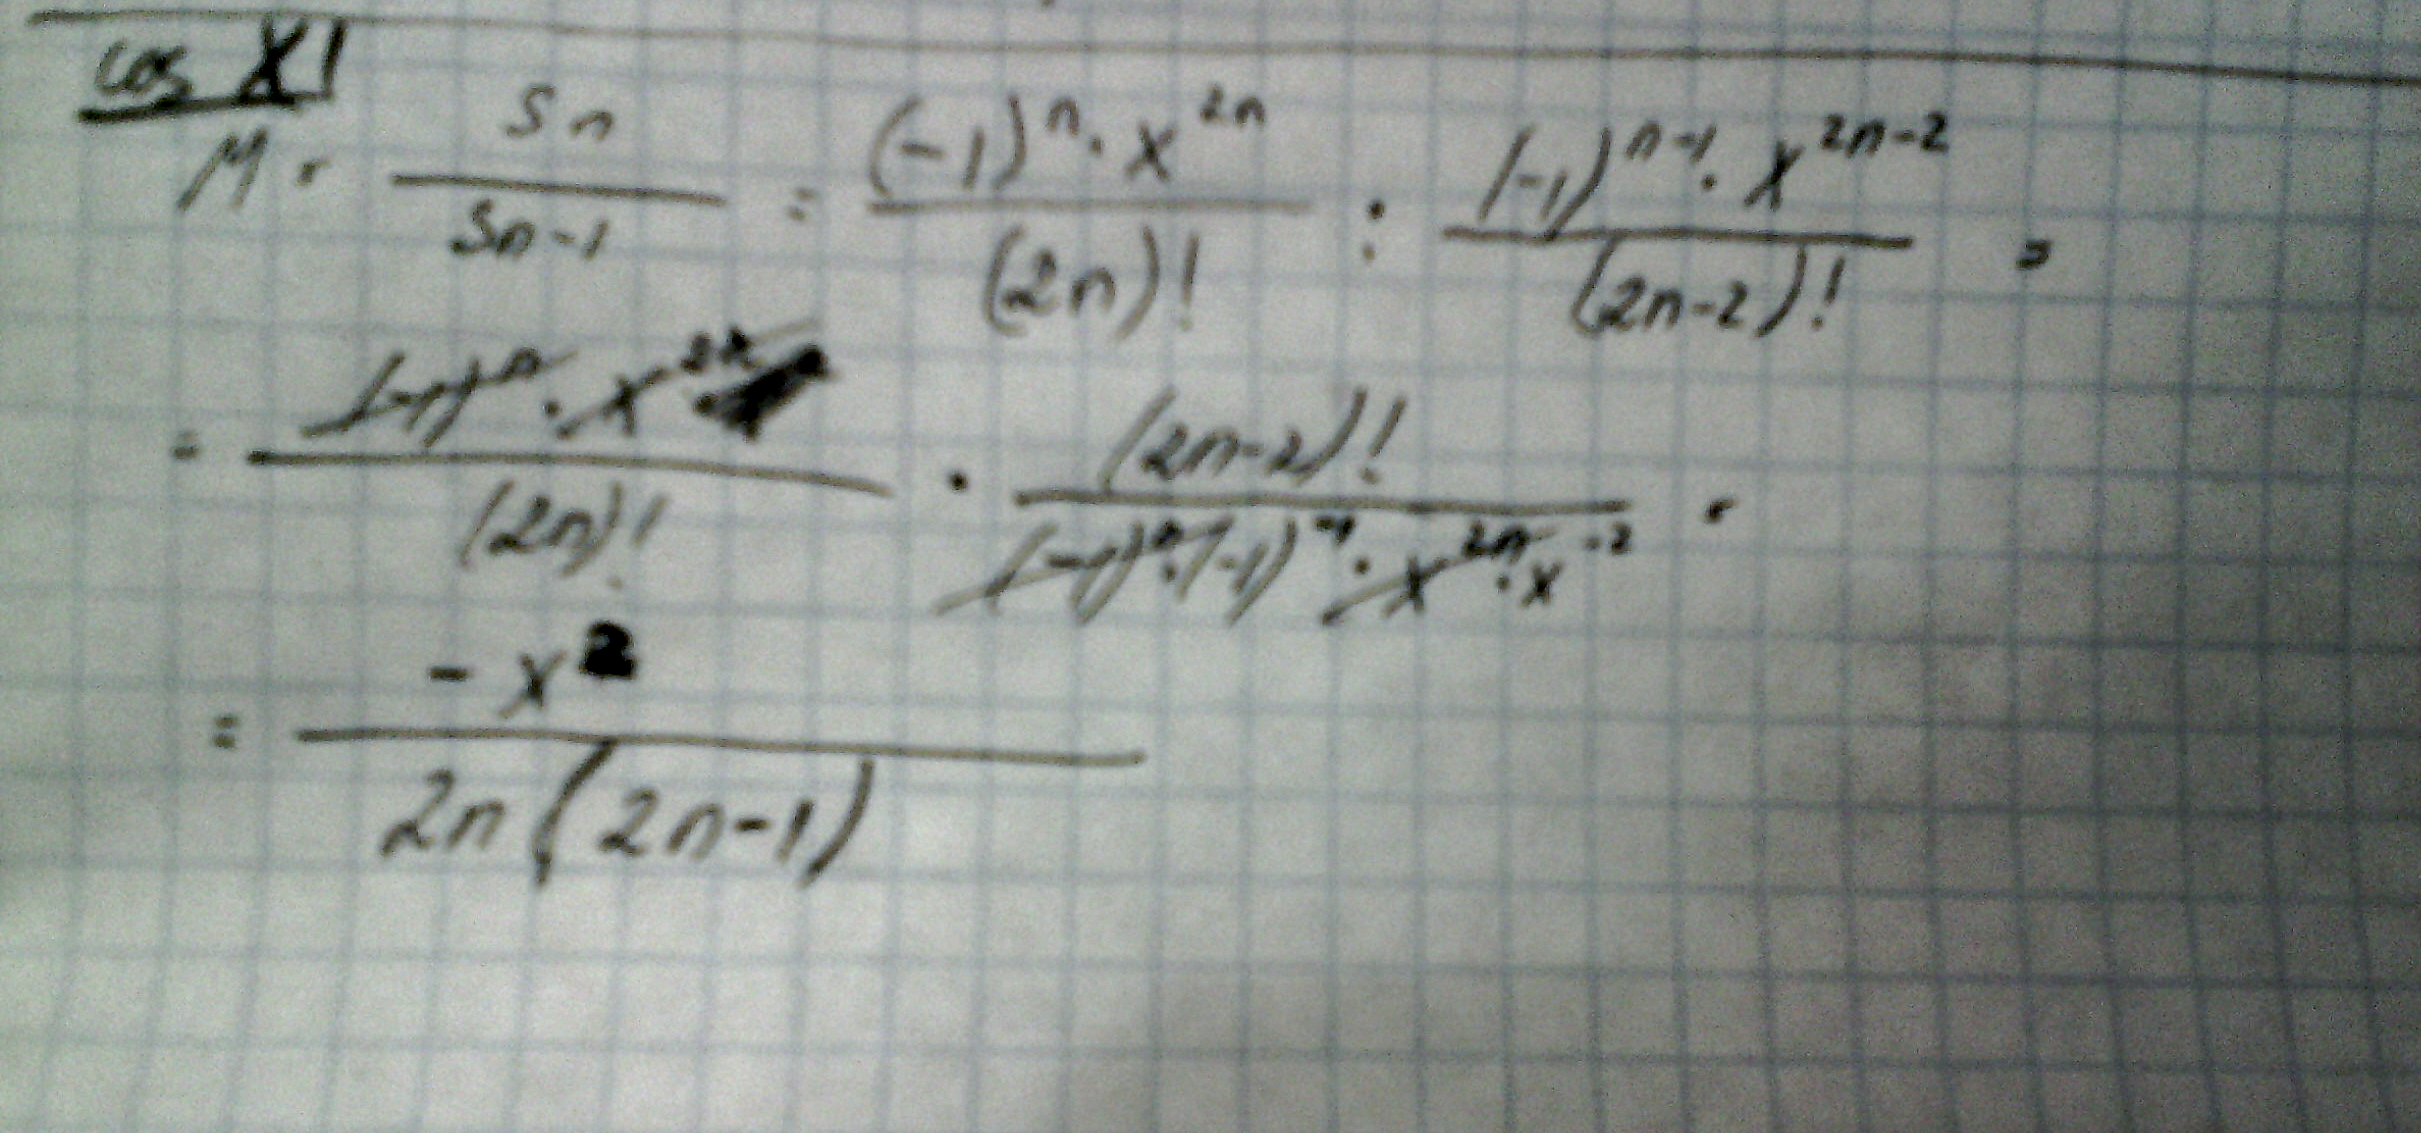 cos x
M = Sn / Sn-1 = (-1)^n · x^2n / (2n)! : (-1)^n-1 · x^2n-2 / (2n-2)! =
= (-1)^n · x^2n / (2n)! · (2n-2)! / (-1)^n · (-1)^-1 · x^2n · x^-2 =
= - x^2 / 2n(2n-1)